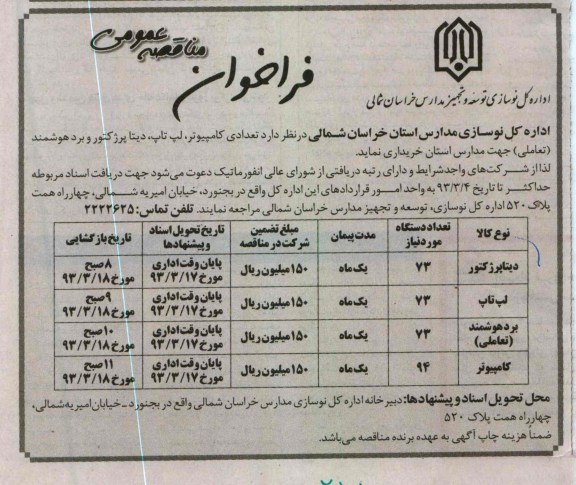 فراخوان مناقصه عمومی
اداره کل نوسازی توسعه و تجهیز مدارس خراسان شمالی
اداره کل نوسازی مدارس استان خراسان شمالی در نظر دارد تعدادی کامپیوتر، لپ تاپ، دیتا پرژکتور و برد هوشمند
(تعاملی) جهت مدارس استان خریداری نماید.
لذا از شرکت‌های واجد شرایط و دارای رتبه دریافتی از شورای عالی انفورماتیک دعوت می‌شود جهت دریافت اسناد مربوطه
حداکثر تا تاریخ ۹۳/۳/۴ به واحد امور قراردادهای این اداره کل واقع در بجنورد، خیابان امیریه شمالی، چهارراه همت
پلاک ۵۲۰ اداره کل نوسازی، توسعه و تجهیز مدارس خراسان شمالی مراجعه نمایند. تلفن تماس: ۲۲۲۲۶۲۵
نوع کالا | تعداد دستگاه مورد نیاز | مدت پیمان | مبلغ تضمین شرکت در مناقصه | تاریخ تحویل اسناد و پیشنهادها | تاریخ بازگشایی
دیتا پرژکتور | ۷۳ | یک ماه | ۱۵۰ میلیون ریال | پایان وقت اداری مورخ ۹۳/۳/۱۷ | ۸ صبح مورخ ۹۳/۳/۱۸
لپ تاپ | ۷۳ | یک ماه | ۱۵۰ میلیون ریال | پایان وقت اداری مورخ ۹۳/۳/۱۷ | ۹ صبح مورخ ۹۳/۳/۱۸
برد هوشمند (تعاملی) | ۷۳ | یک ماه | ۱۵۰ میلیون ریال | پایان وقت اداری مورخ ۹۳/۳/۱۷ | ۱۰ صبح مورخ ۹۳/۳/۱۸
کامپیوتر | ۹۴ | یک ماه | ۱۵۰ میلیون ریال | پایان وقت اداری مورخ ۹۳/۳/۱۷ | ۱۱ صبح مورخ ۹۳/۳/۱۸
محل تحویل اسناد و پیشنهادها: دبیرخانه اداره کل نوسازی مدارس خراسان شمالی واقع در بجنورد ـ خیابان امیریه شمالی،
چهارراه همت پلاک ۵۲۰
ضمناً هزینه چاپ آگهی به عهده برنده مناقصه می‌باشد.